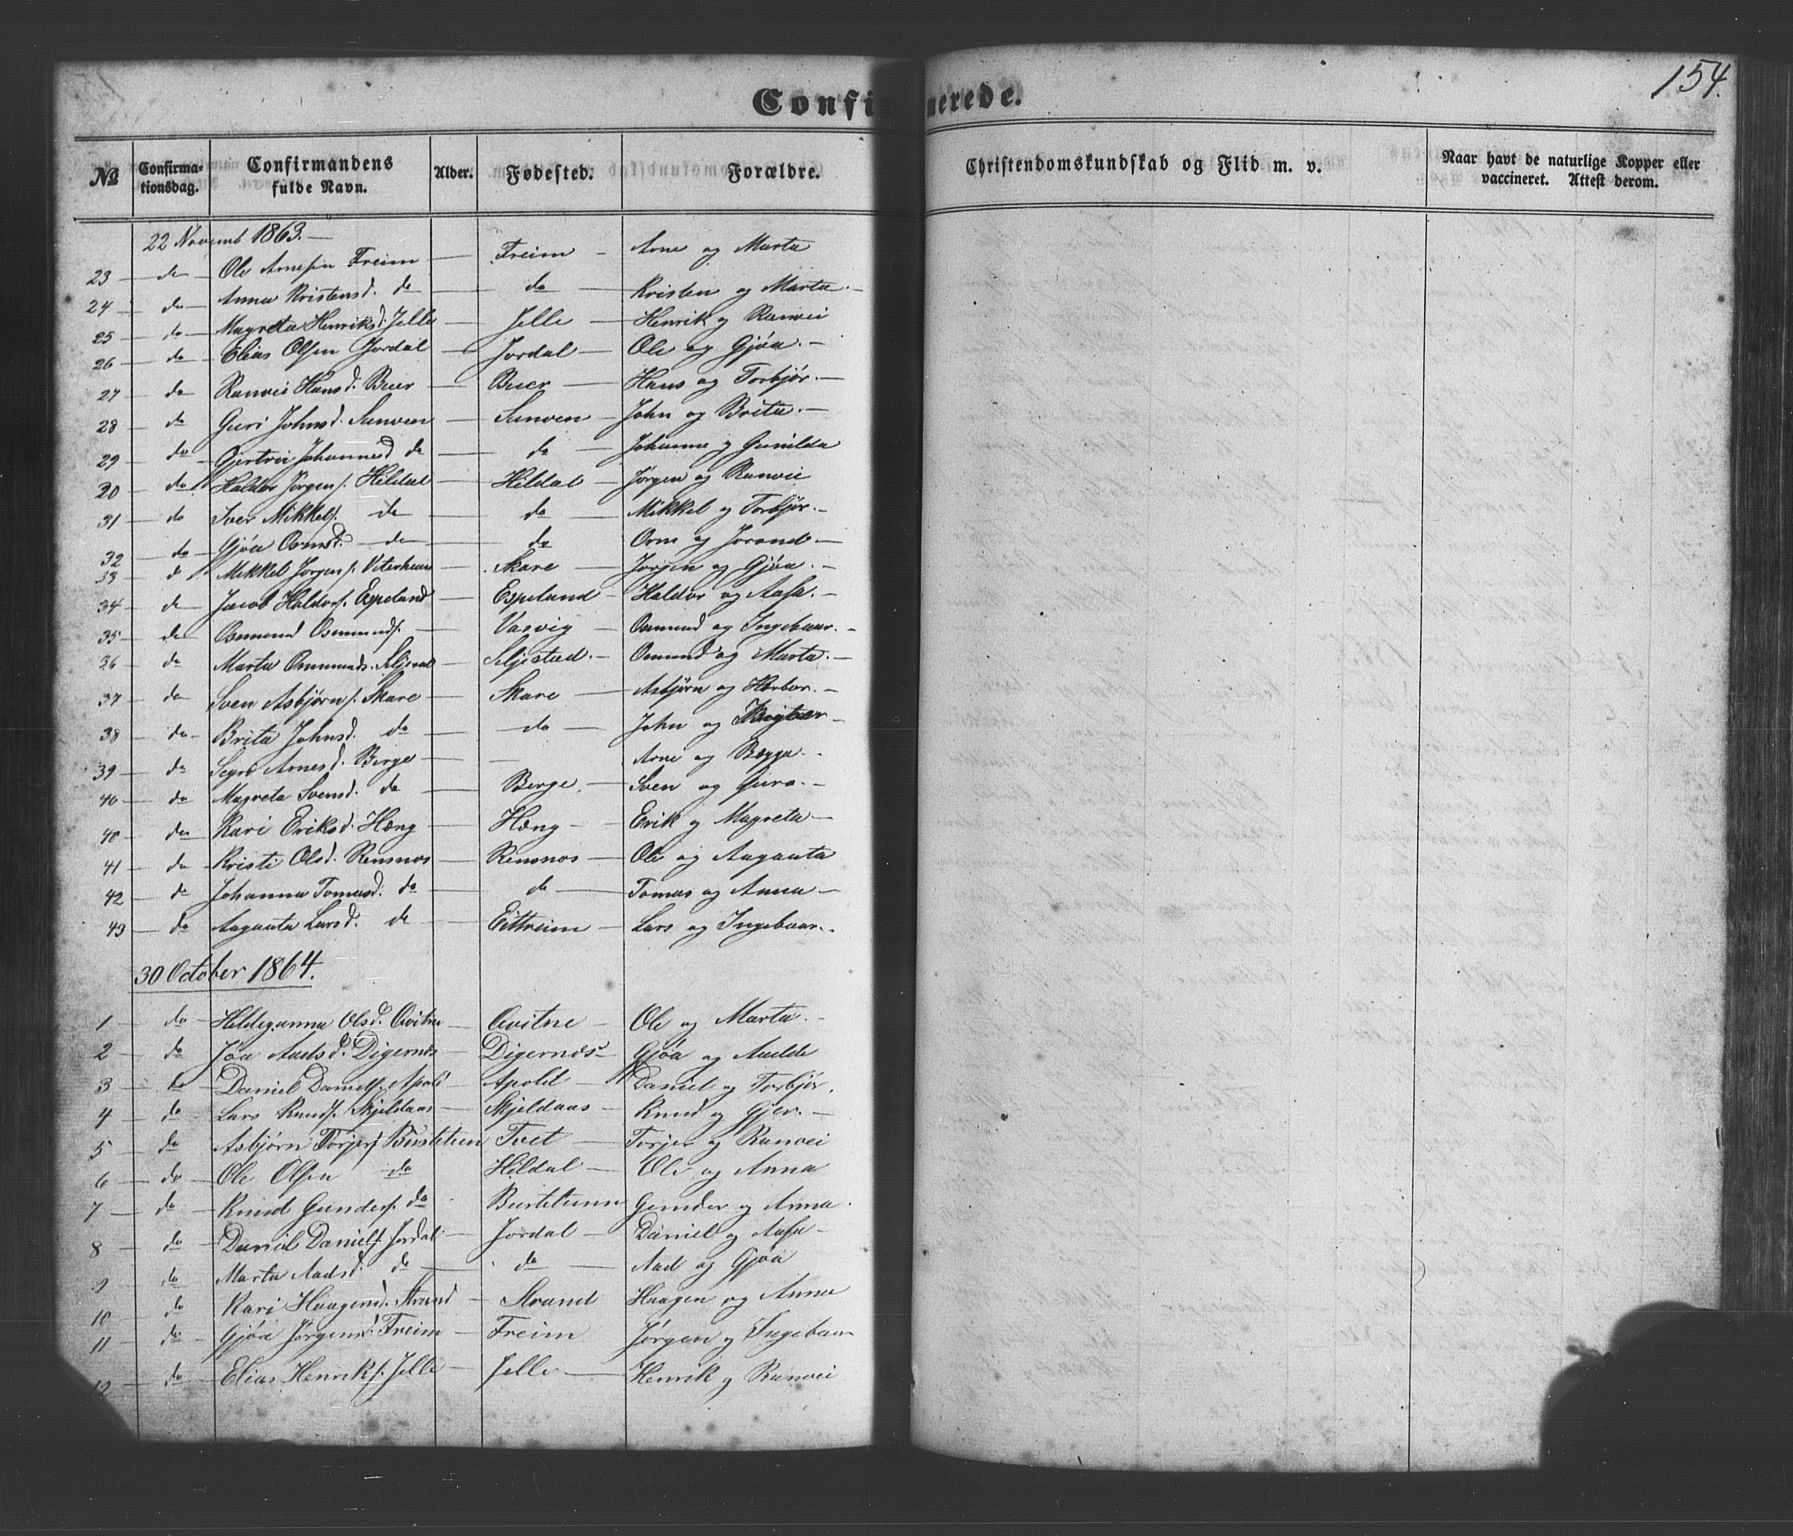 Confi nerede.
154.
No Confirma-tionsdag. Confirmandens fulde Navn. Alder. Fødested. Forældre. Christendomskundskab og Flid m. v. Naar havt de naturlige Kopper eller vaccineret. Attest derom.
22 Novemb 1863.—
23 — do Ole Arnesen Freim — Freim — Arne og Marta
24 — do Anna Kristensd. do — do — Kristen og Marta —
25 — do — Magreta Henriksd. Jelle — Jelle — Henrik og Ranvei
26 — do Elias Olsen Jordal — Jordal — Ole og Gjøa. —
27 — do Ranvei Hansd. Buer — Buer — Hans og Torbjør. —
28 — do Guri Johnsd. Sanven — Sanven — John og Brita. —
29 — do Gjertru Johannesd do — do — Johanne og Gunilda
20 — do Haldor Jørgens. Hildal — Hildal — Jørgen og Ranvei
31 — do Iver Mikkels. do — do — Mikkel og Torbjør. —
32 — do Gjøa Ormsd. do — do Orm og Jorand —
33 — d Mikkel Jørgens. — Skare — Jørgen og Gjøa. —
34 — do Jacob Haldors. Espeland — Espeland — Haldor og Aasa. —
35 — do Osmund Osmunds. — Vasvig — Osmund og Ingebaar. —
36 — do Marta Osmunds. — Seljestad. — Osmund og Marta. —
37 — do Sven Asbjørns. Skare — Skare — Asbjørn og Herbor. —
38 — do Brita Johnsd. do — do — John og
39 — do Arnesd. Berge — — Arne og Bægga. —
40 — do Magreta Svensd. do — Berge. — Sven og Guro. —
40 — do Kari Eriksd. Hæng — Hæng — Erik og Magreta —
41 — do Kristi Olsd. Rensnos — Rensnos — Ole og Aagaata
42 — do Johanna Tomasd. do — do — Tomas og Anna —
43 — do Aagaata Larsd. do — Eittreim — Lars og Ingebaar. —
30 October 1864.
1 — do Hildegunna Olsd. Qvitne — Qvitne — Ole og Marta. —
2 — do Jøa Aadsd. Digernes — Digernes — Gjøa og
3 — do — Daniel Daniels. Apold — Apold — Daniel og Torbjør.
4 — do — Lars Knuds. Skjeldaas — Skjeldaas — Knud og Gjer. —
5 — do Asbjørn Torjers. Tvet — Torjer og Ranvei
6 — do — Ole Olsen do Hildal — Ole og Anna
7 — do — Knud Gunders. do Gunder og Anna.
8 — do — Daniel Daniels. Jordal — Jordal — Daniel og Aasa —
9 do Marta Aadsd. do — do — Aad og Gjøa
10 — do Kari Haagensd. Strand — Strand Haagen og Anna
11 — do — Gjøa Jørgensd. Freim — Freim — Jørgen og Ingebaar
12 — do — Elias Henriks. Jelle — Jelle — Henrik og Ranvei